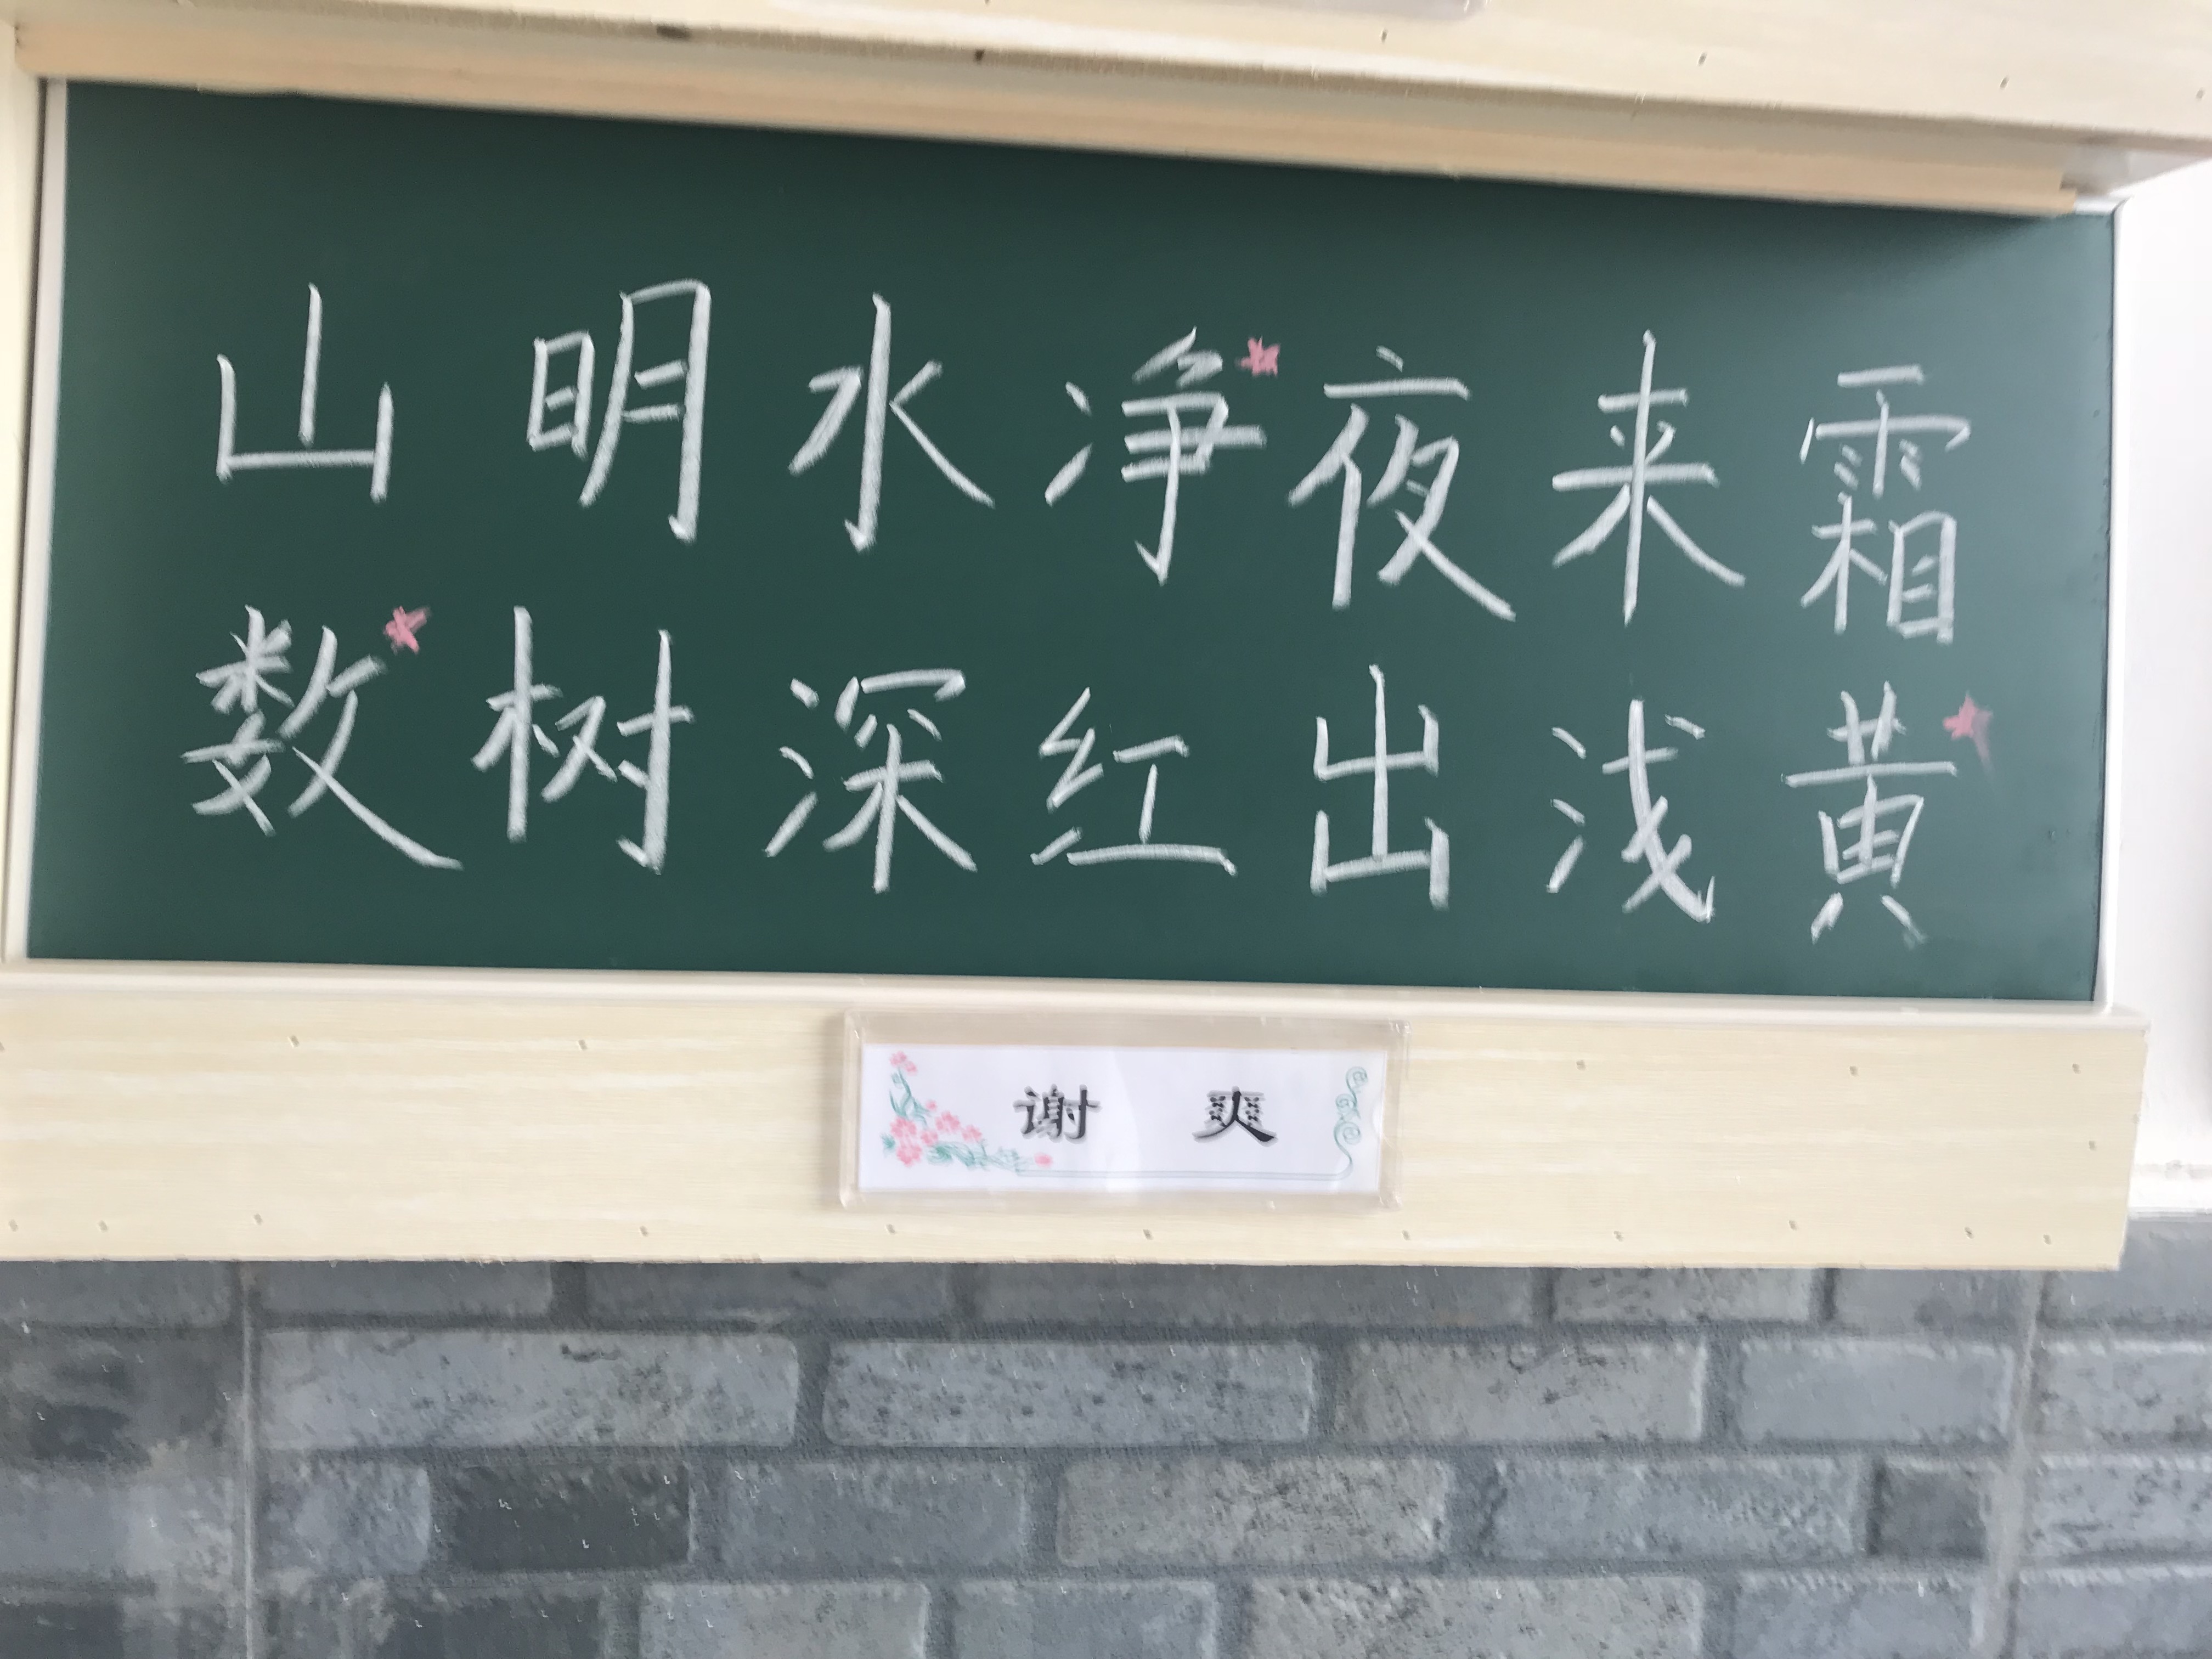 山明水净夜来霜
数树深红出浅黄
谢 爽